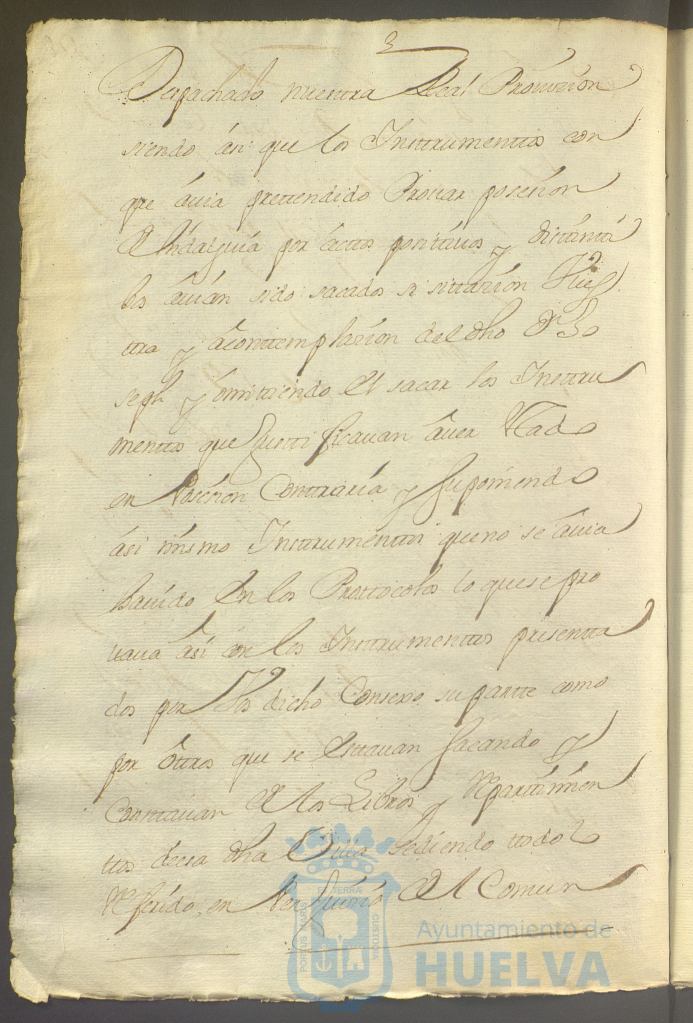 Despachado nuestra Real Provision
siendo ási que los Instrumentos con
que ávia prettendido Provar posesion
de hidalguia por áctos positivos y distintá
los ávian sido sacados si sittazion
ttra y ácontemplazion del dho Dn Jo
seph y omittiendo el sacar los Instru
mentos que Justtificavan áver
en Posesion Contraria y suponiendo
ási mismo Instrumenttos que no se ávia
havido En los Prottocolos lo que se pro
vava ási con los Instrumenttos presentta
dos por el dicho Consexo su partte como
por ótros que se Esttavan sacando y
Constavan de los Libros y Repartimien
ttos de esa dha Villa zediendo ttodo lo
Referido en Perjuizio del Comun
PORTUS MARIS
ET TERRAE
CUSTODIA
Ayuntamiento de
HUELVA